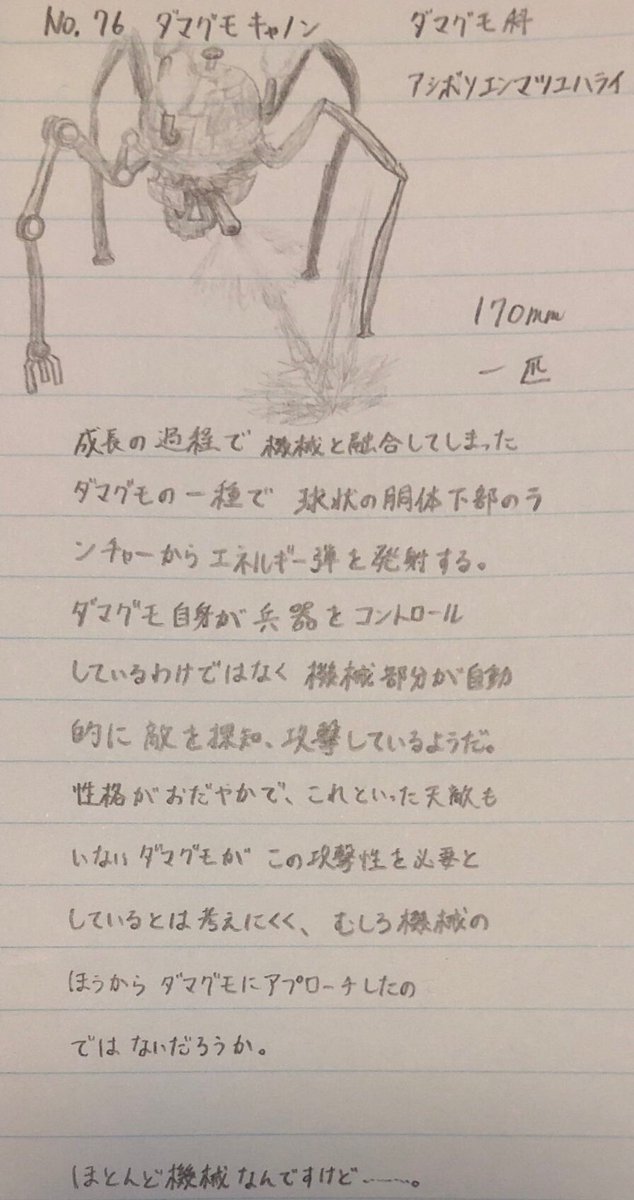 No. 76 ダマグモキャノン
ダマグモ科
アシボソエンマツユハライ
170mm
一匹
成長の過程で 機械と融合してしまった
ダマグモの一種で 球状の胴体下部のラ
ンチャーからエネルギー弾を発射する。
ダマグモ自身が兵器をコントロール
しているわけではなく 機械部分が自動
的に敵を探知、攻撃しているようだ。
性格がおだやかで、これといった天敵も
いないダマグモが この攻撃性を必要と
しているとは考えにくく、むしろ機械の
ほうから ダマグモにアプローチしたの
では ないだろうか。
ほとんど機械なんですけど……。